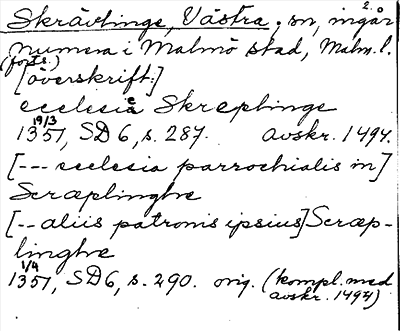 2.
Skrävlinge, Västra, sn, ingår
numera i Malmö stad, Malm. l.
(forts.)
[överskrift:]
ecclesie Skreplinge
19/3
1351, SD 6, s. 287. avskr. 1494.
[--- ecclesia parrochialis in]
Scræplinghe
[-- aliis patronis ipsius] Scræp-
linghe
1/4
1351, SD6, s. 290. orig. (kompl. med
avskr. 1494)